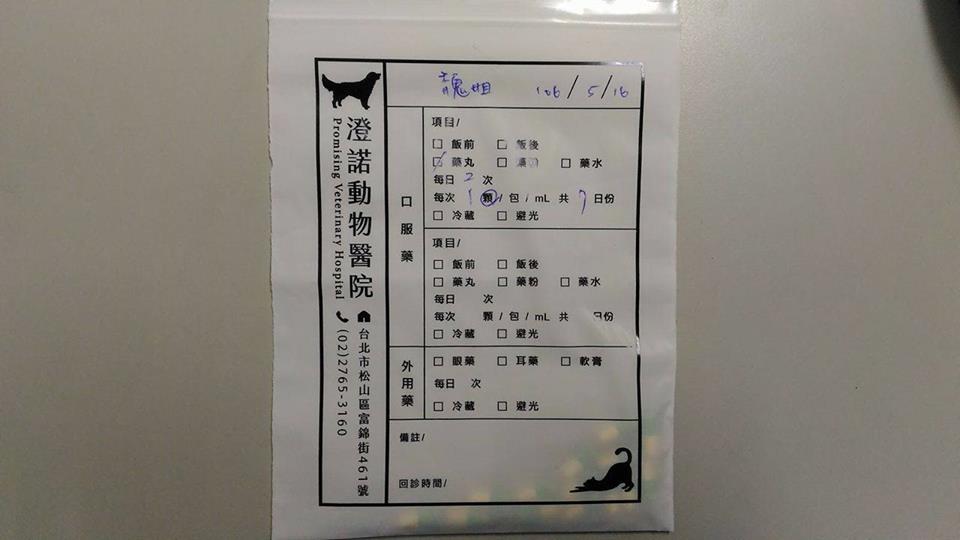 澄諾動物醫院
Promising Veterinary Hospital
台北市松山區富錦街461號
(02)2765-3160
106/5/16
口服藥
項目/
□ 飯前 □ 飯後
☑ 藥丸 □ 藥粉 □ 藥水
每日 2 次
每次 1 顆/包/mL 共 7 日份
□ 冷藏 □ 避光
項目/
□ 飯前 □ 飯後
□ 藥丸 □ 藥粉 □ 藥水
每日 次
每次 顆/包/mL 共 日份
□ 冷藏 □ 避光
外用藥
□ 眼藥 □ 耳藥 □ 軟膏
每日 次
□ 冷藏 □ 避光
備註/
回診時間/